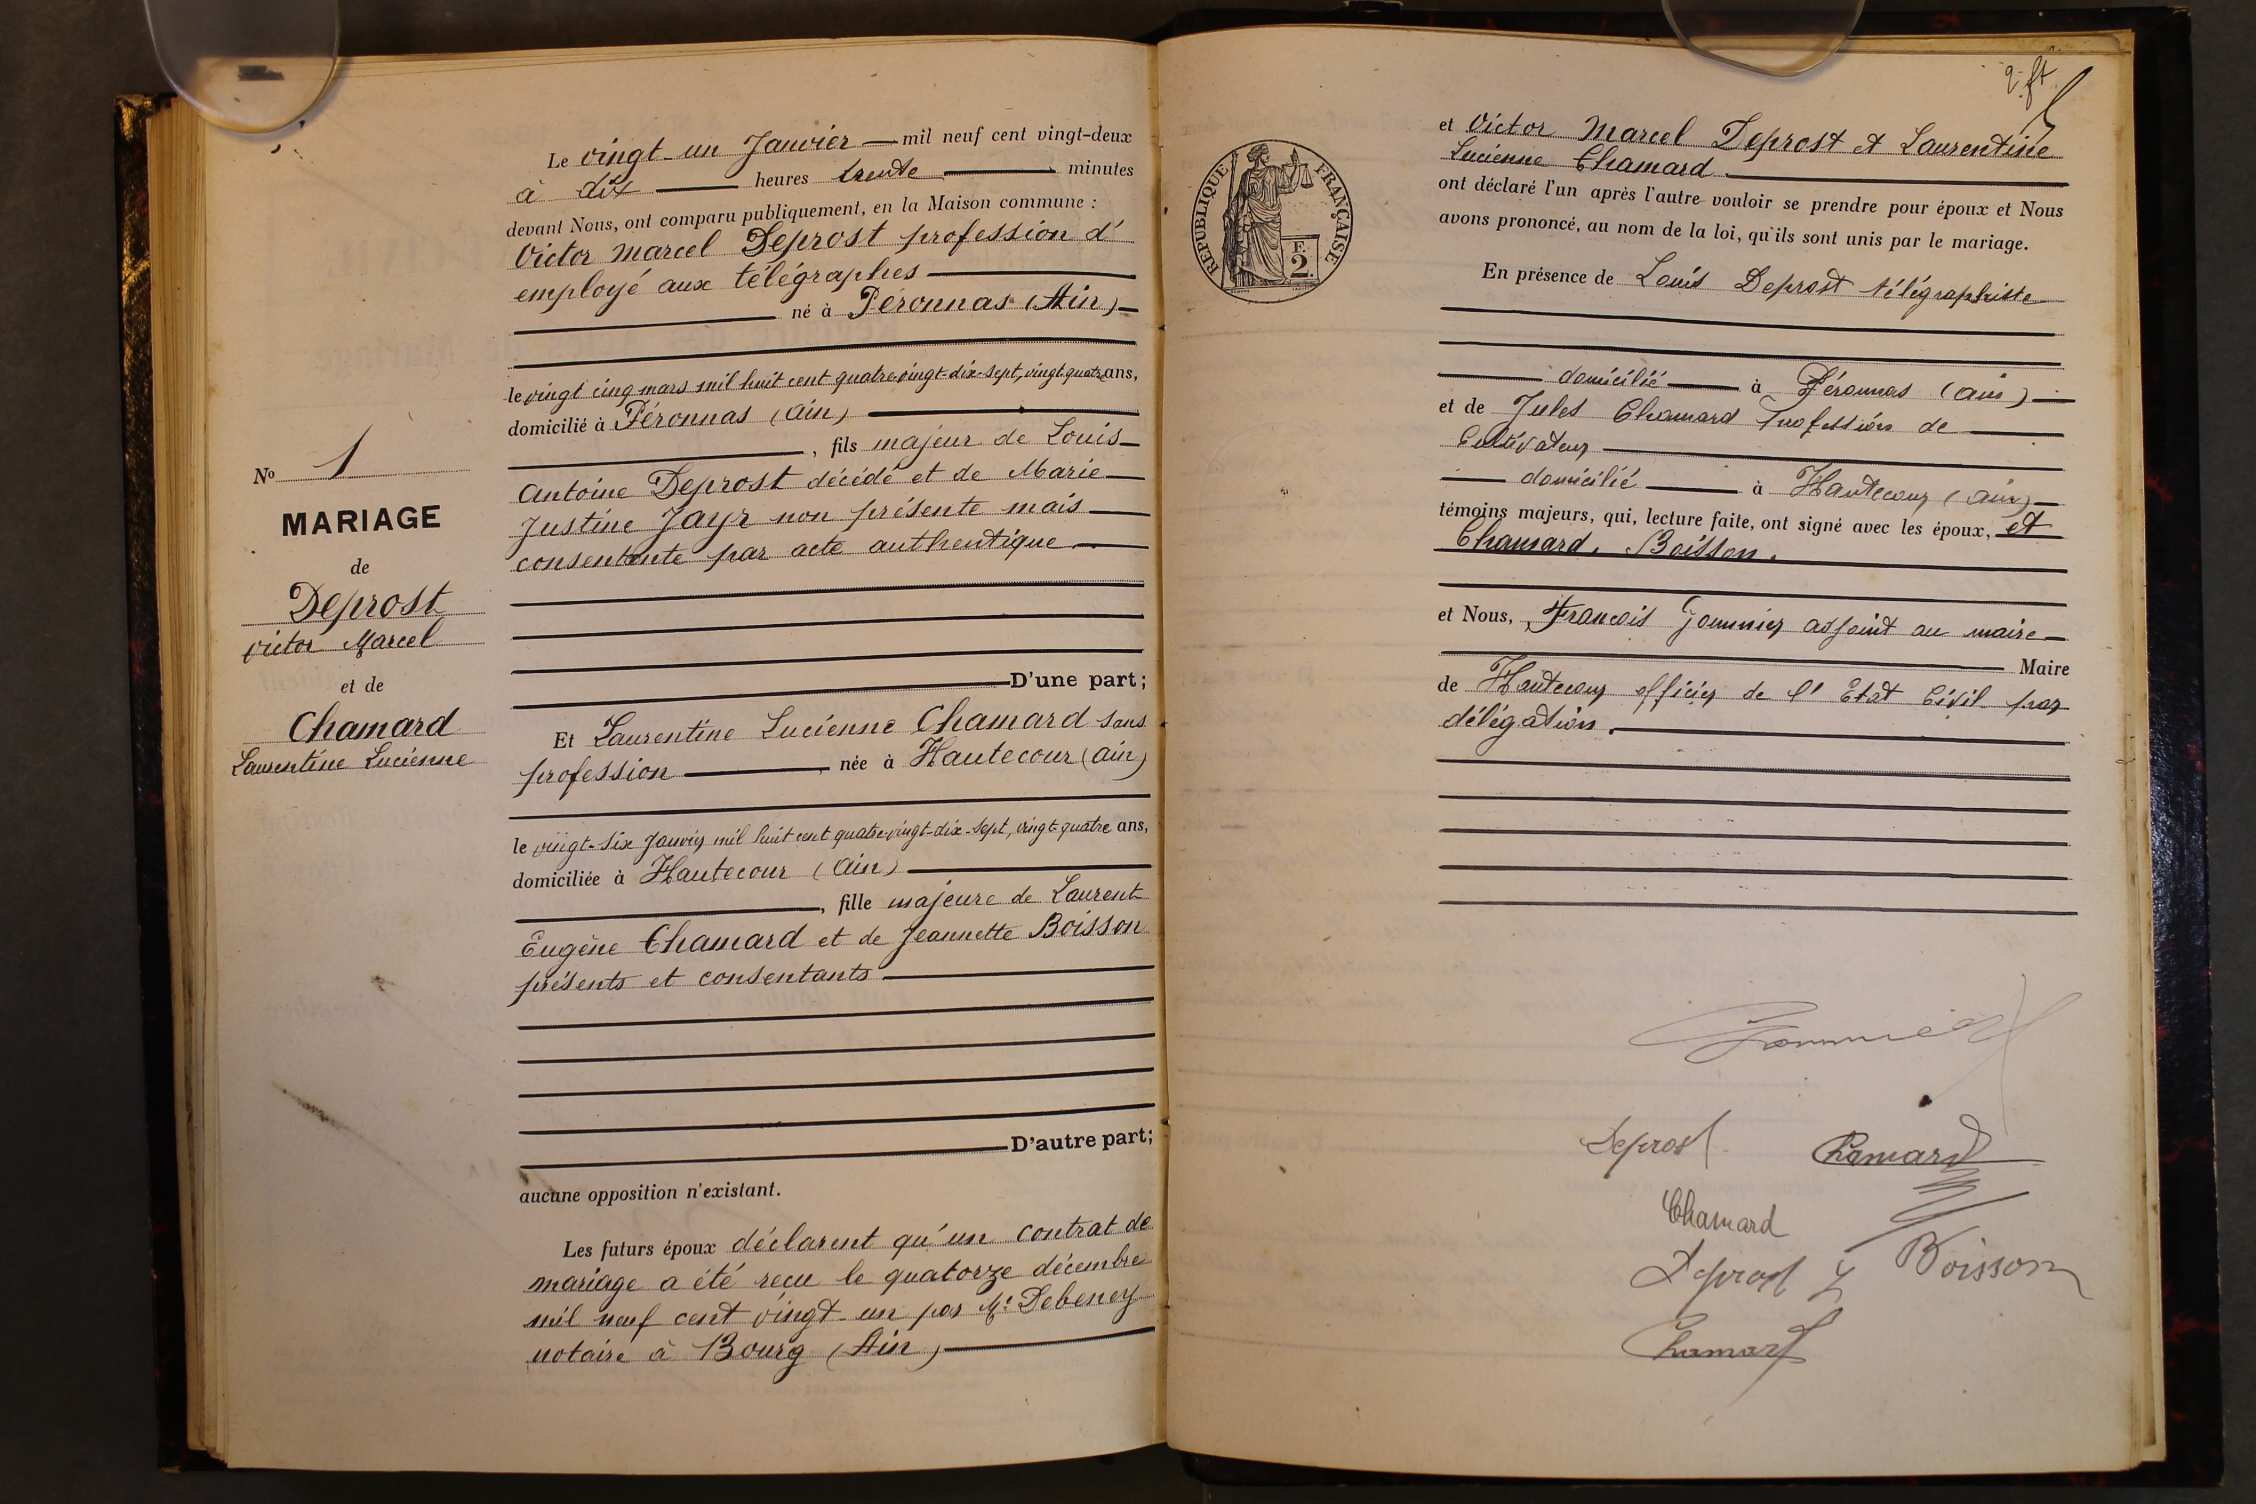 N° 1
MARIAGE
de
Deprost
Victor Marcel
et de
Chamard
Laurentine Lucienne
Le vingt-un Janvier mil neuf cent vingt-deux
à dix heures trente minutes
devant Nous, ont comparu publiquement, en la Maison commune :
Victor Marcel Deprost profession d'
employé aux télégraphes
né à Péronnas (Ain)
le vingt cinq mars mil huit cent quatre-vingt-dix-sept, vingt-quatre ans,
domicilié à Péronnas (Ain)
, fils majeur de Louis
Antoine Deprost décédé et de Marie
Justine Jayr non présente mais
consentante par acte authentique
D'une part;
Et Laurentine Lucienne Chamard sans
profession née à Hautecour (Ain)
le vingt-six Janvier mil huit cent quatre-vingt-dix-sept, vingt-quatre ans,
domiciliée à Hautecour (Ain)
, fille majeure de Laurent
Eugène Chamard et de Jeannette Boisson
présents et consentants
D'autre part;
aucune opposition n'existant.
Les futurs époux déclarent qu'un contrat de
mariage a été reçu le quatorze décembre
mil neuf cent vingt-un par Me Debeney
notaire à Bourg (Ain)
RÉPUBLIQUE FRANÇAISE
F.
2.
et Victor Marcel Deprost et Laurentine
Lucienne Chamard
ont déclaré l'un après l'autre vouloir se prendre pour époux et Nous
avons prononcé, au nom de la loi, qu'ils sont unis par le mariage.
En présence de Louis Deprost télégraphiste
domicilié à Péronnas (Ain)
et de Jules Chamard Profession de
Cultivateur
domicilié à Hautecour (Ain)
témoins majeurs, qui, lecture faite, ont signé avec les époux, et
Chamard, Boisson.
et Nous, François Gommier adjoint au maire
Maire
de Hautecour officier de l'Etat Civil par
délégation.
Gommier
Deprost Chamard
Chamard
Deprost Boisson
Chamard